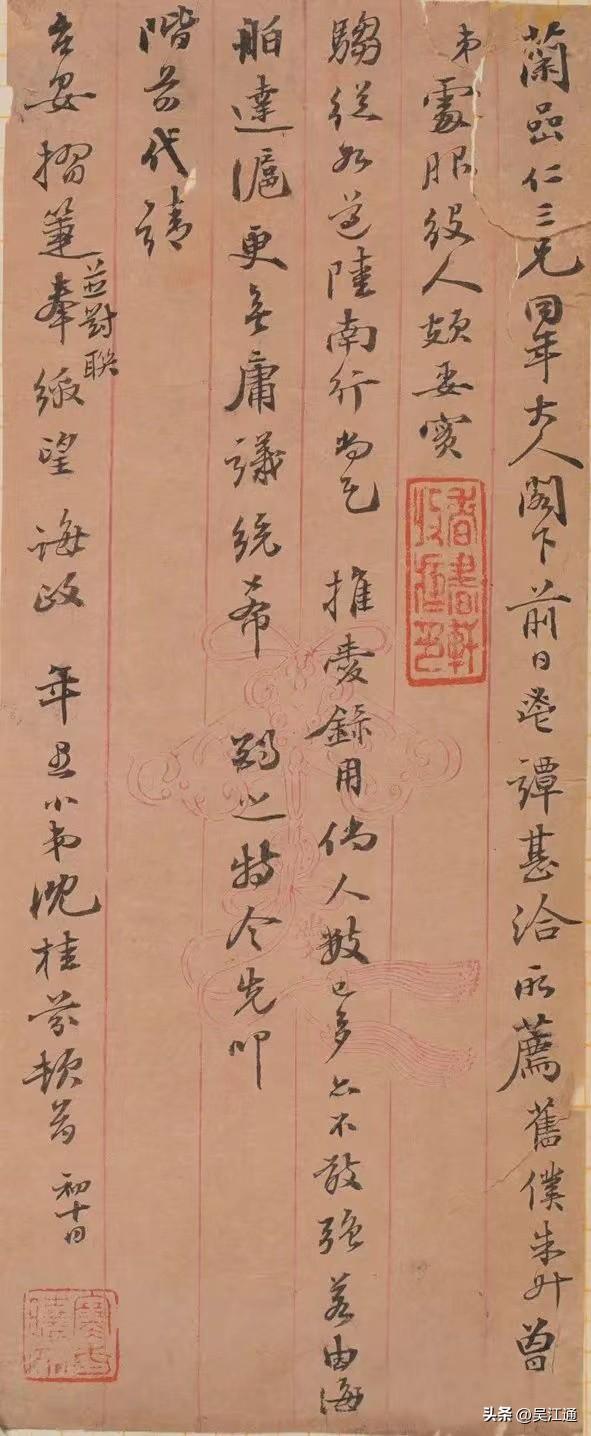 蘭嵒仁三兄同年大人閣下前日鬯譚甚洽所薦舊僕朱升曾
弟處服役人頗妥實
騶從如遵陸南行尚乞 推愛錄用倘人數已多亦不敢强若由海
舶達滬更無庸議統希 酌之特令先叩
階前代請
台安摺箑奉繳望 誨政 年愚小弟沈桂芬頓首 初十日
並對聯
香書軒
头条 @吴江通